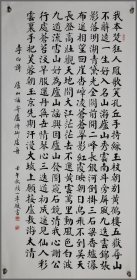 我本楚狂人鳳歌笑孔丘手持綠玉杖朝別黃鶴樓五嶽尋仙
不辭遠一生好入名山遊廬山秀出南斗傍屏風九疊雲錦張
影落明湖青黛光金闕前開二峰長銀河倒掛三石梁香爐瀑
布遙相望迴崖沓嶂凌蒼蒼翠影紅霞映朝日鳥飛不到吳天
長登高壯觀天地間大江茫茫去不還黃雲萬里動風色白波
九道流雪山好為廬山謠興因廬山發閑窺石鏡清我心謝公
行處蒼苔沒早服還丹無世情琴心三疊道初成遙見仙人彩
雲裏手把芙蓉朝玉京先期汗漫九垓上願接盧敖遊太清
李白詩 廬山謠寄盧侍御虛舟